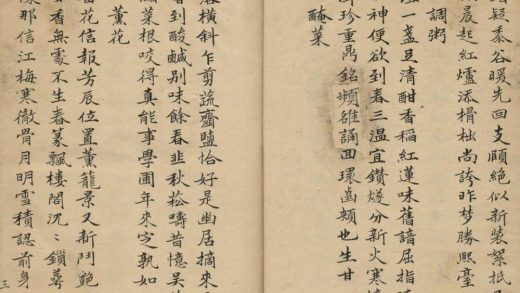 疑黍谷暖先回支頤絶似新裝絮抵
晨起紅爐添榾柮尚誇昨夢勝熙臺
調粥
一盞且清酣香稻紅蓮味舊諳屈指
神便欲到春三温宜鑽燧分新火寒
珍重鼎銘頻雒誦回環齒頰也生甘
醃菜
落橫斜乍剪蔬虀鹽恰好是幽居摘來
看到酸鹹别味餘春韭秋菘疇昔憶吳
菜根咬得真能事學圃年來定孰如
薰花
花信報芳辰位置薰籠景又新鬥艶
香無處不生春篆飄樓閣沈沈鎖蕚
那信江梅寒徹骨月明雪積認前身
三